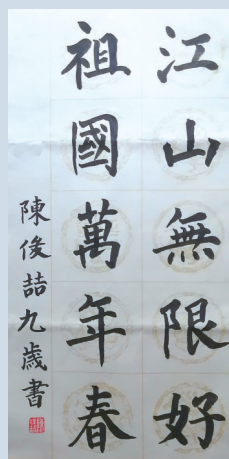 江山無限好
祖國萬年春
陳俊喆九歲書